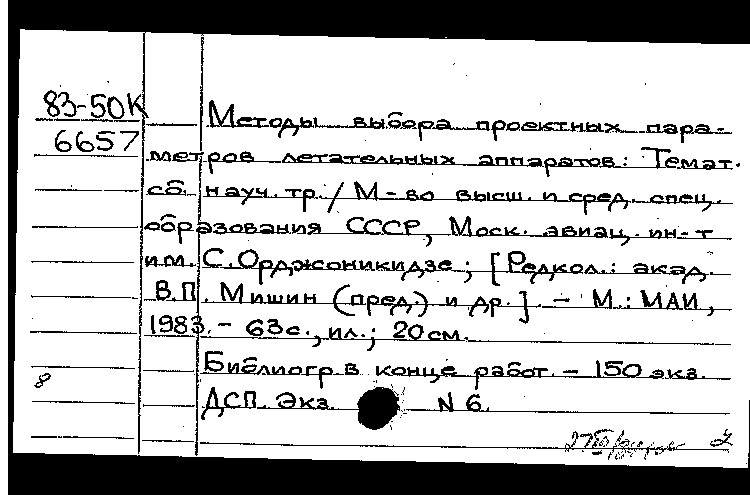 83-50К
6657
Методы выбора проектных пара-
метров летательных аппаратов: Темат.
сб. науч. тр. / М-во высш. и сред. спец.
образования СССР, Моск. авиац. ин-т
им. С. Орджоникидзе; [Редкол.: акад.
В.П. Мишин (пред.) и др.]. - М.: МАИ,
1983. - 63с., ил.; 20 см.
Библиогр. в конце работ. - 150 экз.
8
ДСП. Экз. N 6.